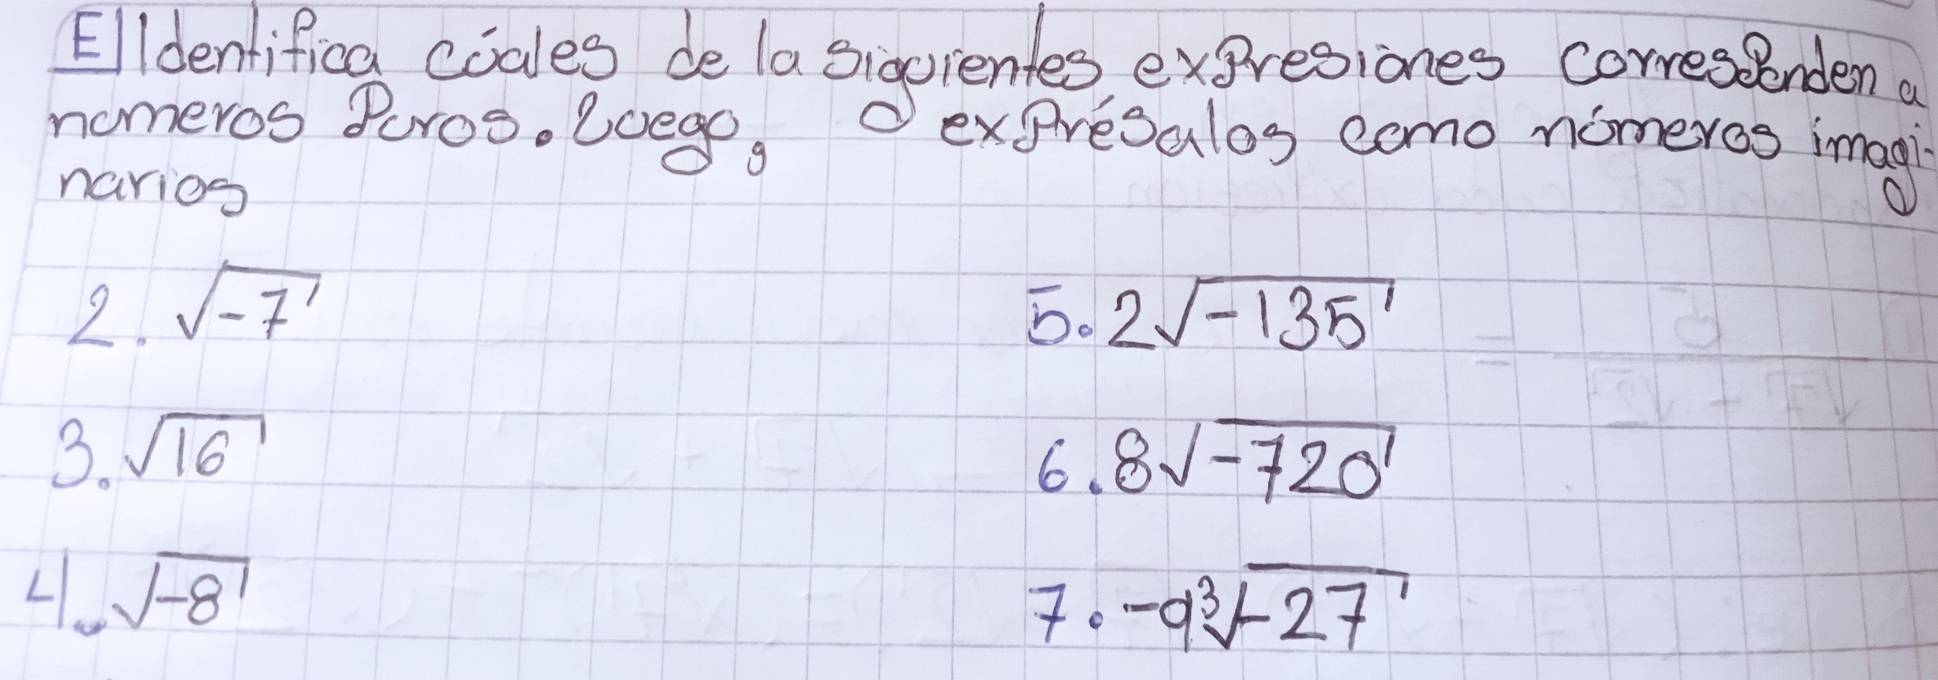 E) Identifica cúales de la siguientes expresiones corresponden a
números puros. Luego, exprésalos como números imagi-
narios
2. √-7
3. √16
4. √-8
5. 2√-135
6. 8√-720
7. -9∛-27